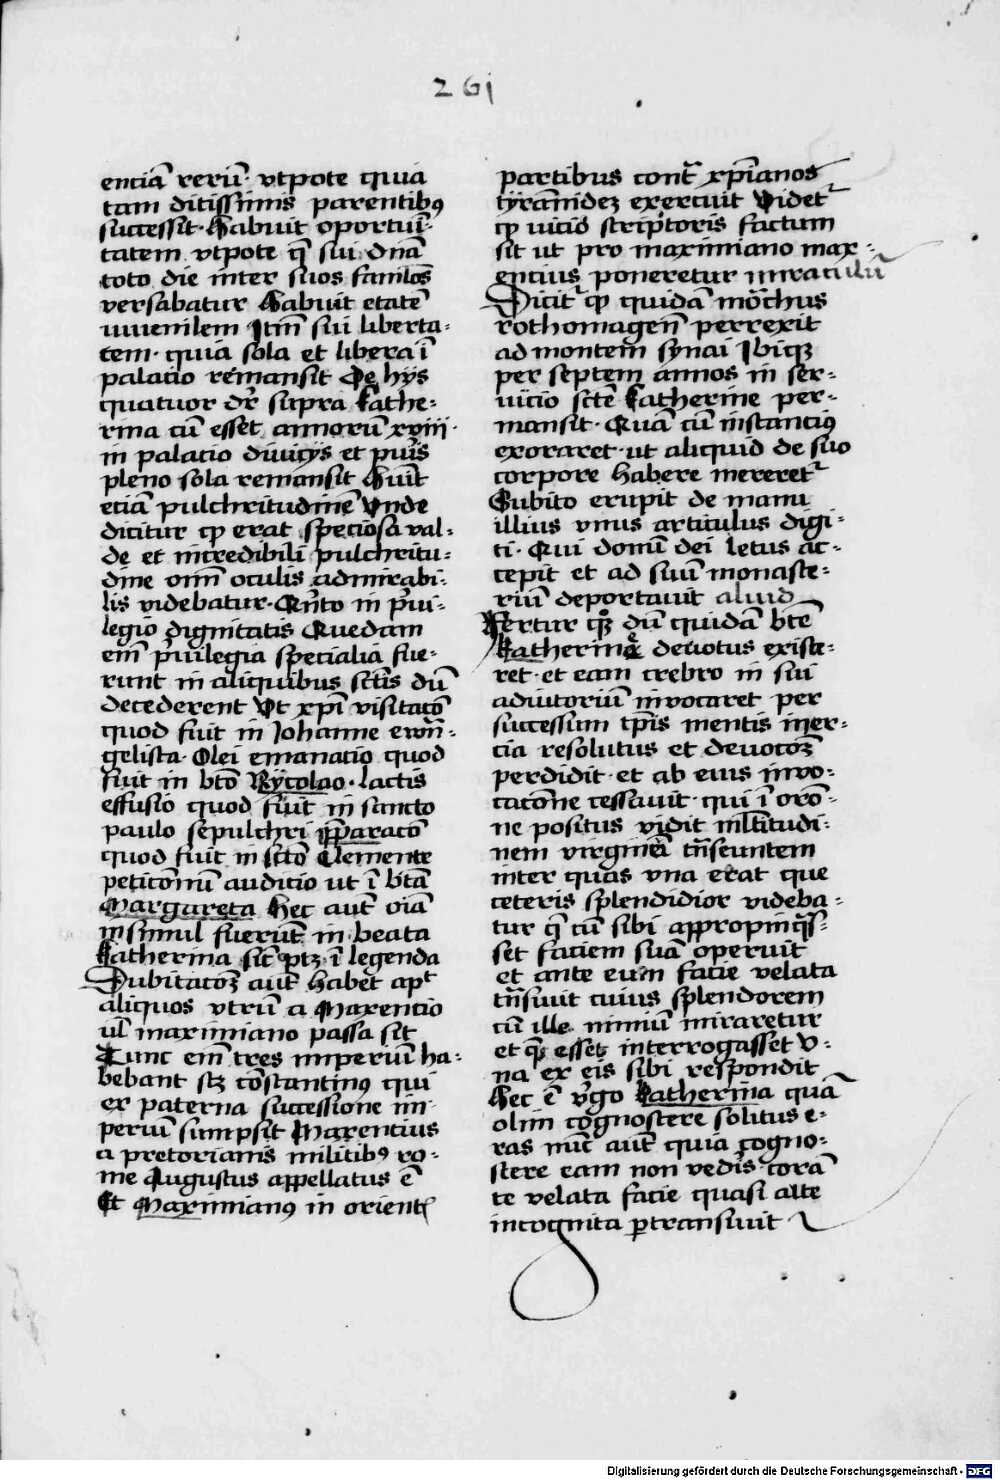 261
enciā rerū· vtpote quia
tam ditissimis parentibꝰ
successit· Habuit oportuni-
tatem vtpote q̄ sui dn̄a
toto die inter suos famlōs
versabatur Habuit etatē
iuuenilem Itm̄ sui liberta-
tem· quia sola et libera ī
palacio remansit De hys
quatuor dr̄ supra Kathe-
rina cū esset annorū xviii·
in palacio diuicijs et pu̾is
pleno sola remansit Huit
eciā pulchritudinē Vnde
dicitur ꝙ erat speciosa val-
de et incredibili pulchritu-
dine oim̄ oculis admirabi-
lis videbatur· Qn̄to in p̾ui-
legio dignitatis Quedam
em̄ p̾uilegia specialia fue-
runt in aliquibus sctīs dū
decederent Vt xp̄i visitacō
quod fuit in Johanne ewn̄-
gelista· Olei emanacio quod
fuit in btō Nycolao· lactis
effusio quod fuit in sancto
paulo sepulchri p̄paracō
quod fuit in sctō Clemente
peticōnū audicio ut ī btā
Margareta Hec aut̄ oīa
insimul fuerūt in beata
Katherina sic̄ ptꝫ ī legenda
Dubitacōꝫ aut̄ habet apt̄
aliquos vtrū a Maxencio
ul̄ maximiano passa sit
Tunc em̄ tres imperiū ha-
bebant scꝫ cōstantinꝰ qui
ex paterna successione im-
periū sumpsit Maxentius
a pretorianis militibꝰ ro-
me Augustus appellatus ē
Et Maximianꝰ in orient̄
partibus cont̄ xp̄ianos
tyrannideꝫ exercuit Videt̄
ꝙ vicio scriptoris factum
sit ut pro maximiano max-
encius poneretur miraculū
Dicit̄ ꝙ quidā mōchus
rothomagen̄ perrexit
ad montem synai Ibiqꝫ
per septem annos in ser-
uicio scte Katherine per-
mansit· Quā cū instanciꝰ
exoraret· ut aliquid de suo
corpore habere mereret̄
Subito erupit de manu
illius vnus articulus digi-
ti· Qui donū dei letus ac-
cepit et ad suū monaste-
riū deportauit aliud
Fertur qꝫ dū quidā btē
Katherine deuotus existe-
ret· et eam crebro in sui
adiutoriū inuocaret per
successum tp̄is mentis iner-
cia resolutus et deuocōꝫ
perdidit· et ab eius inuo-
cacōne cessauit· qui ī orō-
ne positus vidit ml̄titudi-
nem virginē tn̄seuntem
inter quas vna erat que
ceteris splendidior videba-
tur q̄ cū sibi appropinq̄s-
set faciem suā operuit
et ante eum facie velata
tn̄siuit cuius splendorem
cū ille nimiū miraretur
et q̄ esset interrogasset v-
na ex eis sibi respondit
Hec ē v̾go Katherina quā
olim cognoscere solitus e-
ras nūc aut̄ quia cogno-
scere eam non vedis corā
te velata facie quasi alte
incognita ꝑtransiuit
Digitalisierung gefördert durch die Deutsche Forschungsgemeinschaft - DFG